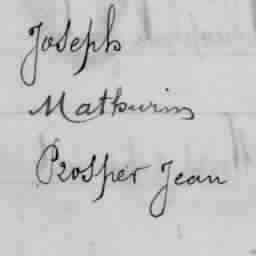 Joseph
Mathurin
Prosper Jean